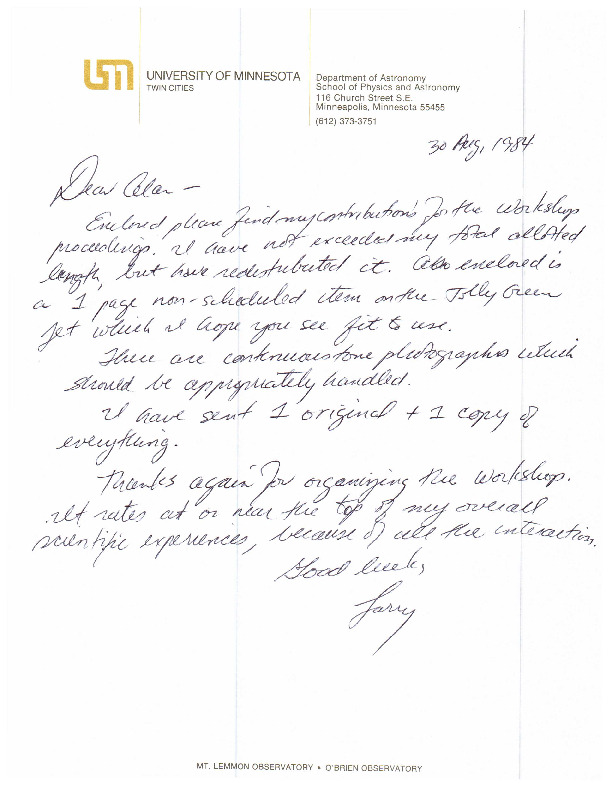 UNIVERSITY OF MINNESOTA
TWIN CITIES
Department of Astronomy
School of Physics and Astronomy
116 Church Street S.E.
Minneapolis, Minnesota 55455
(612) 373-3751
30 Aug, 1984
Dear Alan —
Enclosed please find my contributions for the workshop
proceedings. I have not exceeded my total allotted
length, but have redistributed it. Also enclosed is
a 1 page non-scheduled item on the Jolly Green
Jet which I hope you see fit to use.
There are continuous tone photographs which
should be appropriately handled.
I have sent 1 original + 1 copy of
everything.
Thanks again for organizing the workshop.
It rates at or near the top of my overall
scientific experiences, because of all the interaction.
Good luck,
Larry
MT. LEMMON OBSERVATORY • O'BRIEN OBSERVATORY